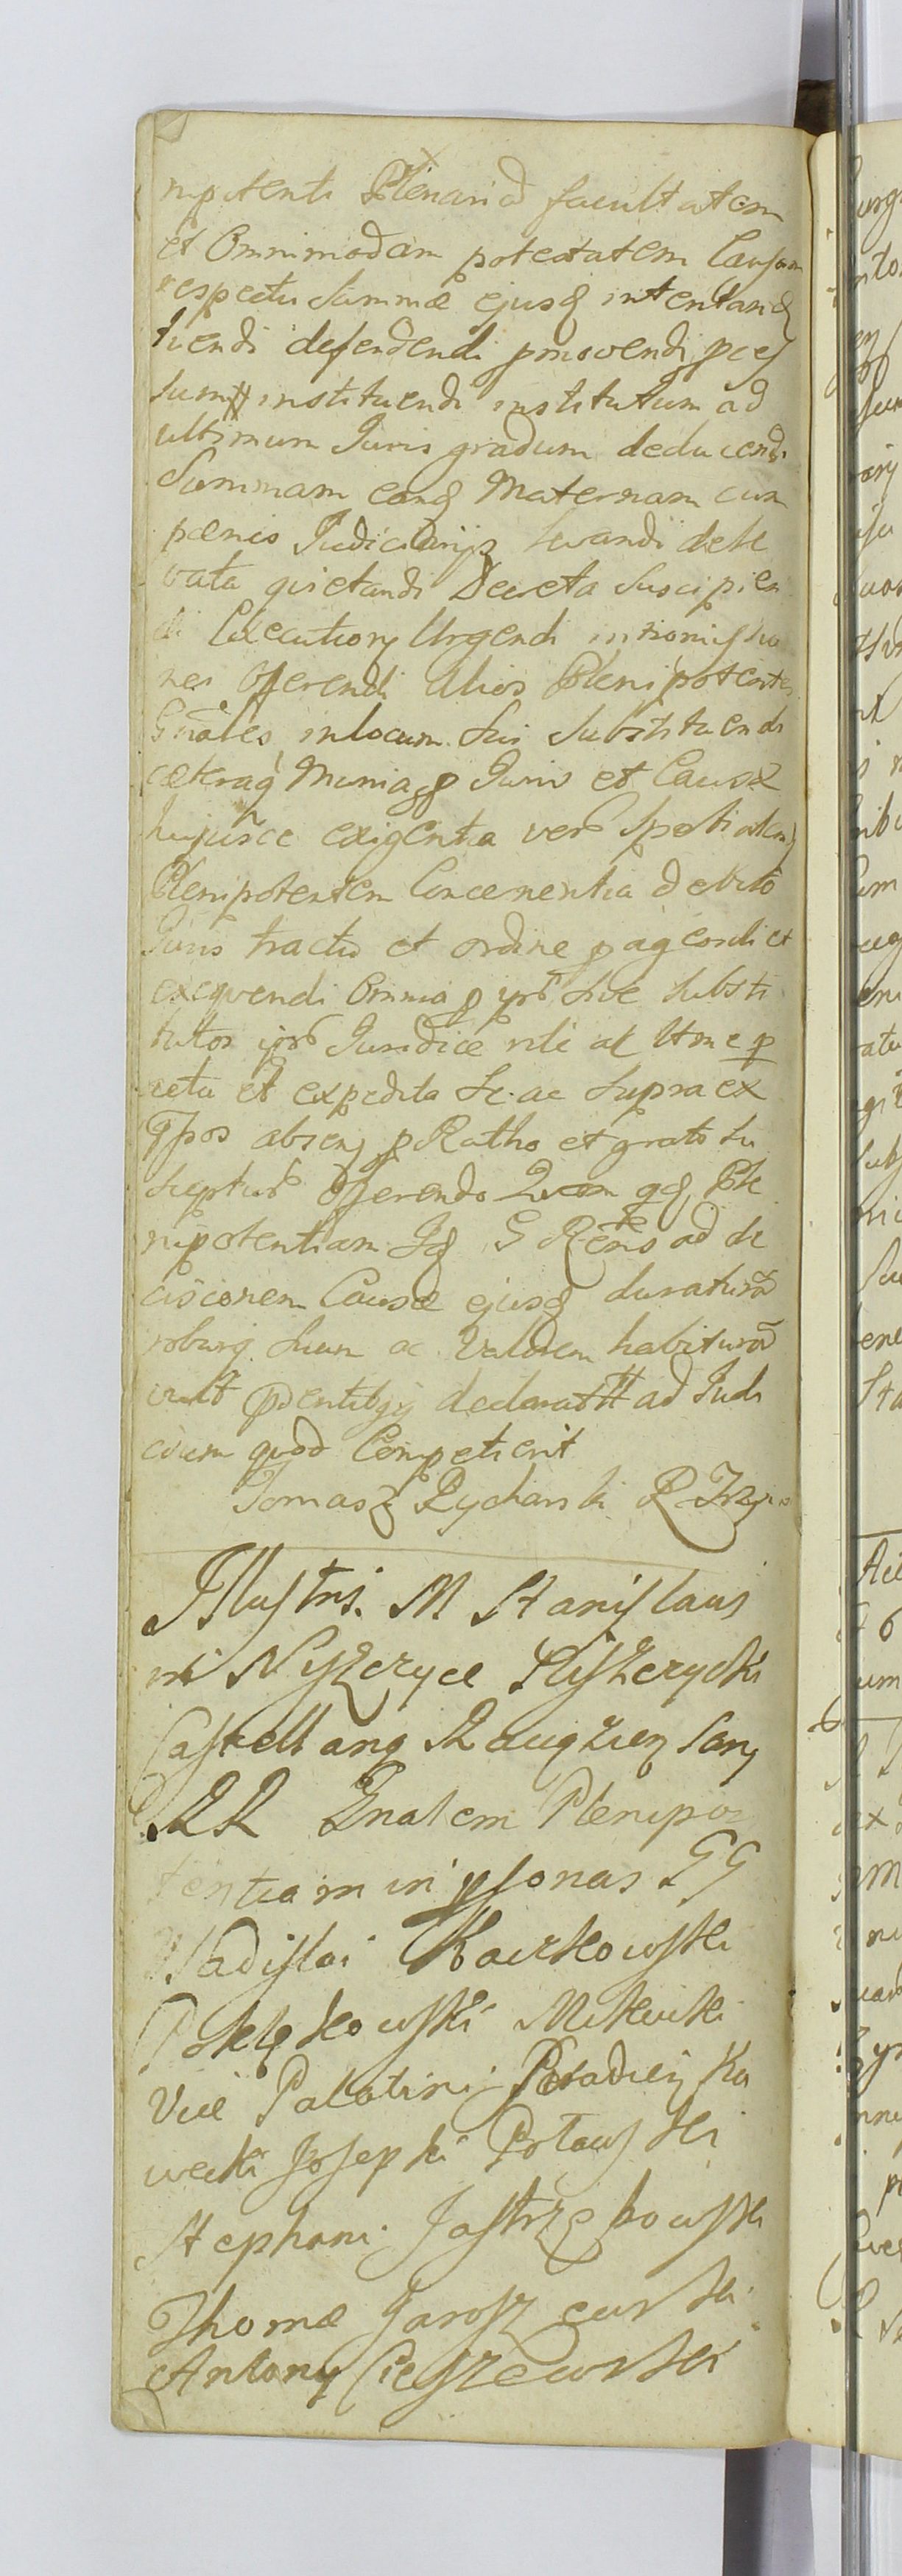 nipotenti Plenariã facultatem
et Omnimodam potestatem Causam
respectu Summæ ejusq intentandi
tuendi defendendi pmovendi pces
sumq instituendi institutum ad
ultimum Juris gradum deducendi
Summam eandq Maternam cum
pænis Judiciarijs levandi dele
vata qvietandi Decreta Suscipien
di Executiony Urgendi intromissio
nes offerendi Alios Plenipotentes
Gnales in locum Sui Substituendi
cæteraq Munia pp Juris et Causæ
hujusce exigentia vero Spetialem
Plenipotentem Concernentia debito
Juris tractu et ordine pagendi et
exeqvendi Omnia p ipso Sive Substi
tutos ipso Juridice rite ac ltme p
acta et expedita Se ac Supra ex
Tpos absens p Ratho et grato Su
Scepturo Offerendo Qvam qd Ple
nipotentiam Id G Rens ad de
cisionem Causæ ejusq duraturã
roburq Suum ac Valorem habiturã
vult pdentibq declarat ad Judi
cium quod Competierit
Tomasz Rycharski R
Illustris M Stanislaus
in Nyszczyce Nyszczycki
Castellang Raugzieg Cany
RR Gnalem Plenipo
tentiam in psonas GG
Wladislai Kaczkowski
Miewski
Vice Palatini Ka
wecki Josephi
Stephani Jastrzębowski
Thomæ Jaroszewski
Antony Cieszewski